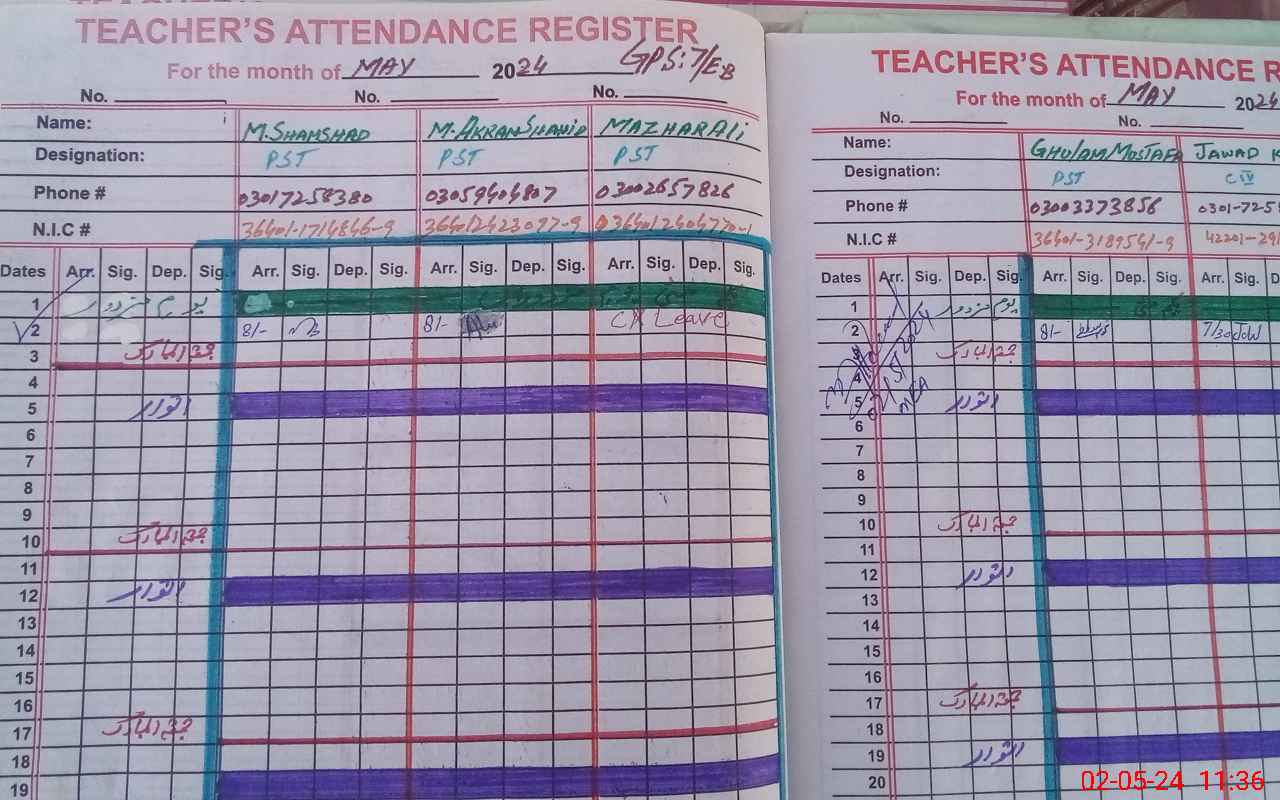 TEACHER'S ATTENDANCE REGISTER
For the month of MAY 2024 GPS:7/EB
No. No. No.
Name: M.SHAMSHAD M.AKRAN SHAHID MAZHAR ALI
Designation: PST PST PST
Phone # 03017258380 03059404807 03002657826
N.I.C # 36401-1714846-9 364012423097-9
Dates Arr. Sig. Dep. Sig. Arr. Sig. Dep. Sig. Arr. Sig. Dep. Sig. Arr. Sig. Dep. Sig.
1 یوم مزدور
2 8/- 8/- Leave
3 جمعۃ المبارک
4
5 اتوار
6
7
8
9
10 جمعۃ المبارک
11
12 اتوار
13
14
15
16
17 جمعۃ المبارک
18
19
TEACHER'S ATTENDANCE R
For the month of MAY 2024
No. No.
Name: GHULAM MUSTAFA JAWAD K
Designation: PST C IV
Phone # 03003373856 0301-725
N.I.C # 36401-3189541-9 42201-291
Dates Arr. Sig. Dep. Sig. Arr. Sig. Dep. Sig. Arr. Sig. D
1 یوم مزدور
2 8/- 7/30
3 جمعۃ المبارک
4
5 اتوار
6
7
8
9
10 جمعۃ المبارک
11
12 اتوار
13
14
15
16
17 جمعۃ المبارک
18
19 اتوار
20
2/5/2024
MEA
02-05-24 11:36